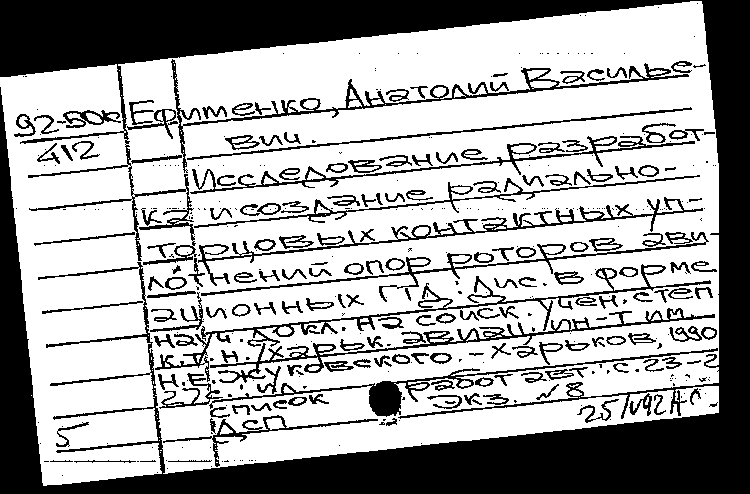 92-50к Ефименко, Анатолий Василье-
412 вич.
Исследование, разработ-
ка и создание радиально-
торцовых контактных уп-
лотнений опор роторов ави-
ационных ГТД : Дис. в форме
науч. докл. на соиск. учен. степ
к.т.н. /Харьк. авиац. ин-т им.
Н.Е. Жуковского. - Харьков, 1990
27с. : ил.
Список работ авт.: с. 23-2
ДСП Экз. №8
5
25/V92